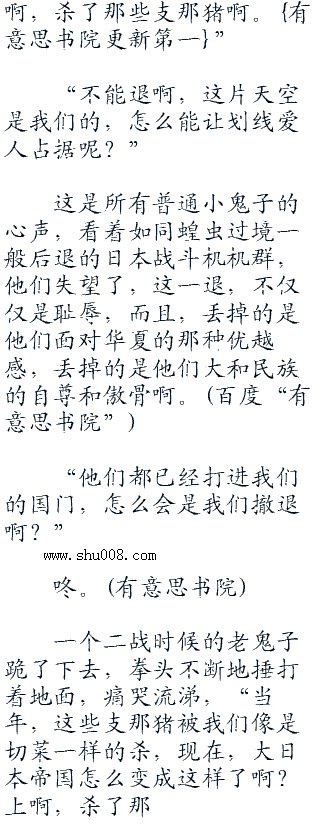 啊，杀了那些支那猪啊。{有
意思书院更新第一}”
“不能退啊，这片天空
是我们的，怎么能让划线爱
人占据呢？”
这是所有普通小鬼子的
心声，看着如同蝗虫过境一
般后退的日本战斗机机群，
他们失望了，这一退，不仅
仅是耻辱，而且，丢掉的是
他们面对华夏的那种优越
感，丢掉的是他们大和民族
的自尊和傲骨啊。(百度“有
意思书院”)
“他们都已经打进我们
的国门，怎么会是我们撤退
啊？”
www.shu008.com
咚。(有意思书院)
一个二战时候的老鬼子
跪了下去，拳头不断地捶打
着地面，痛哭流涕，“当
年，这些支那猪被我们像是
切菜一样的杀，现在，大日
本帝国怎么变成这样了啊？
上啊，杀了那